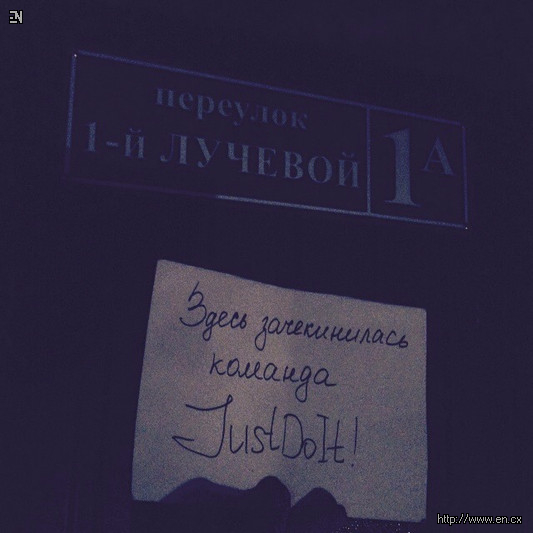 EN
переулок
1-й ЛУЧЕВОЙ
1А
Здесь зачекинилась
команда
JustDoIt!
http://www.en.cx